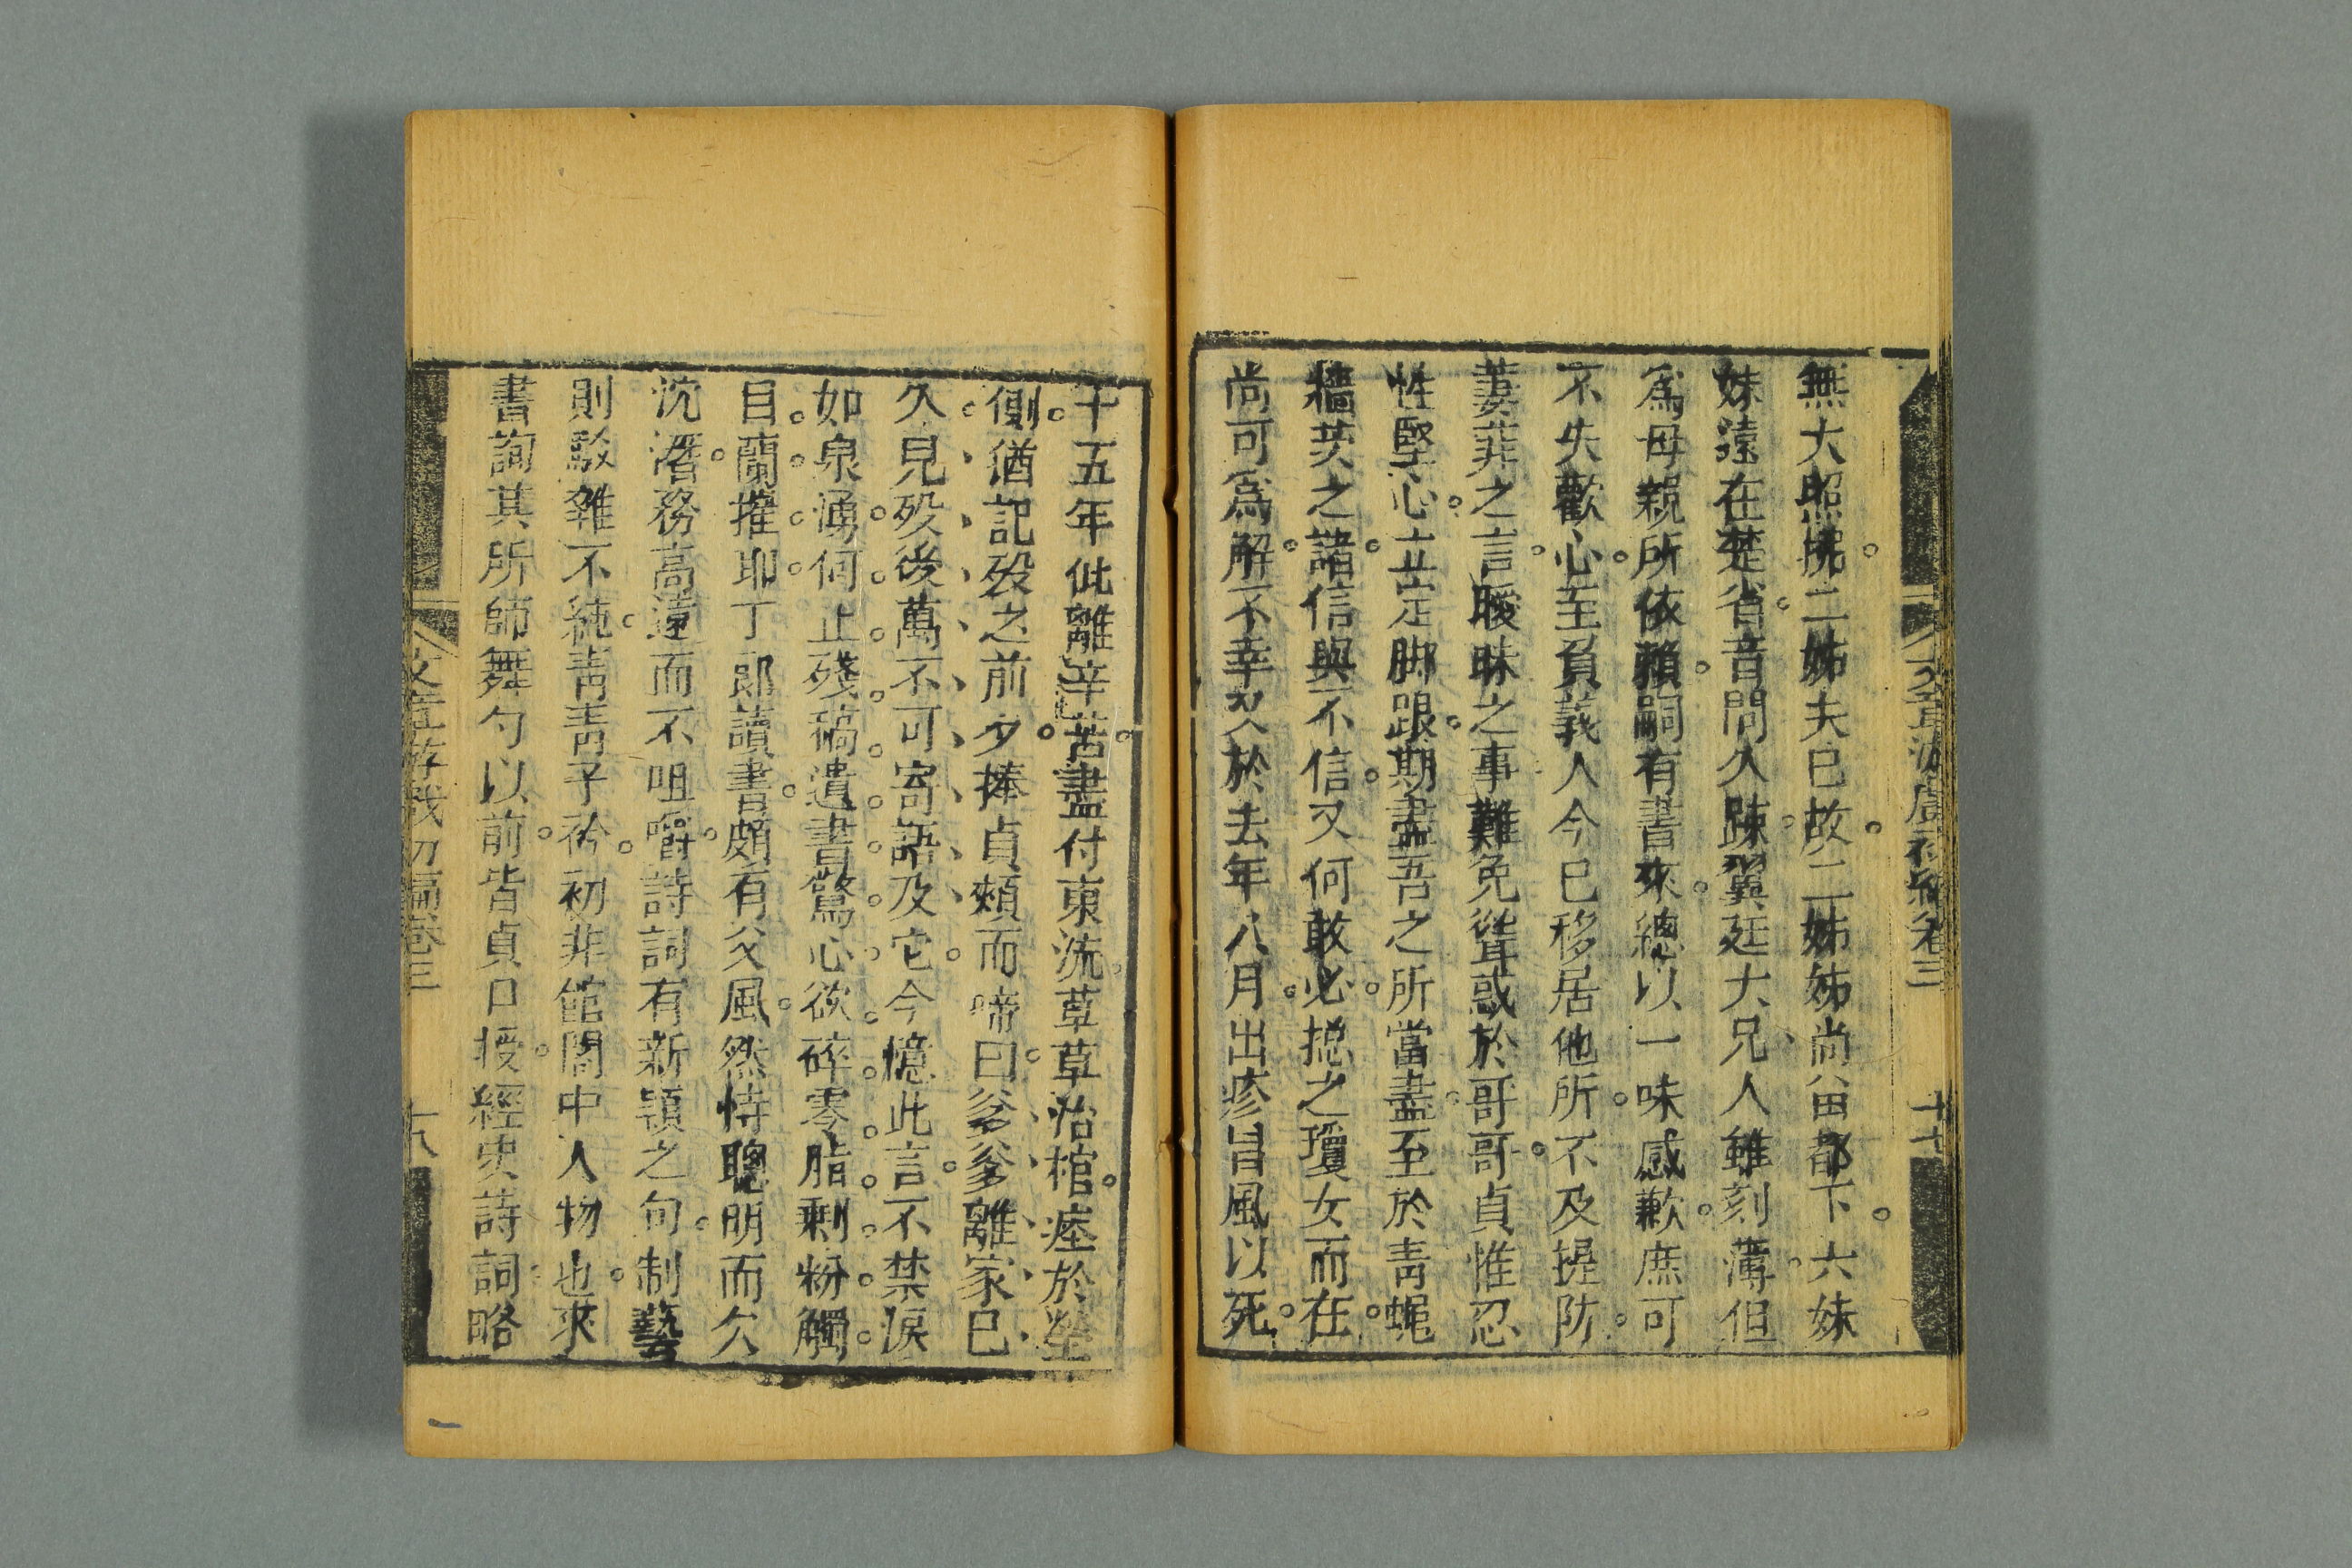 無大照拂二姊夫已故二姊姊尚畱都下六妹
妹遠在楚省音問久踈翼廷大兄人雖刻薄但
爲母親所依賴嗣有書來總以一味感歉庶可
不失歡心至負義人今已移居他所不及提防
萋菲之言曖昧之事難免聳惑於哥哥貞惟忍
性堅心立定脚跟期盡吾之所當盡至於靑蝿
牆茨之諸信與不信又何敢必搃之瓊女而在
尚可爲解不幸又於去年八月出疹冒風以死
十五年仳離辛苦盡付東流草草治棺瘞於塋
側猶記殁之前夕捧貞頰而啼曰爹爹離家已
久見殁後萬不可寄語及它今憶此言不禁淚
如泉湧何止殘稿遺書驚心欲碎零脂剩粉觸
目蘭摧耶丁郎讀書頗有父風然恃聰明而欠
沈潛務高遠而不咀嚼詩詞有新穎之句制藝
則駁雜不純靑靑子衿初非館閣中人物也來
書詢其所師舞勺以前皆貞口授經史詩詞略
文章游戲初編卷三
十七
文章游戲初編卷三
十八